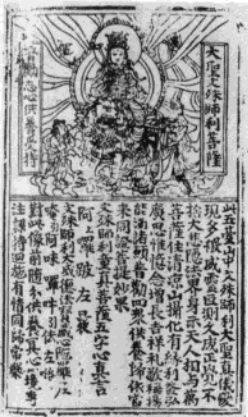 大聖文殊師利菩薩
普勸志心供養受持
此五臺山中文殊師利大聖真儀變
現多般威靈叵測久成正覺不
捨大悲隱法界身示天人相與萬
菩薩住清涼山攝化有緣利益弘
廣思惟憶念增長吉祥禮敬稱揚
能滿諸願普勸四衆供養歸依當
來同證菩提妙果
文殊師利童真菩薩五字心真言
阿上囉跛左曩
文殊師利大威德法寶藏心陀羅尼
唵引阿味囉吽引佉左
對此像前隨分供養冀心一境專
注課誦迴施有情同歸常樂